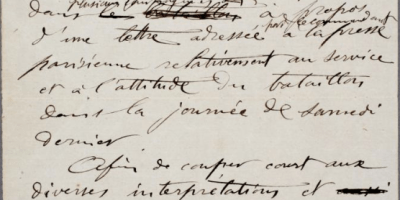 plusieurs
dans à propos
par le commandant
d'une lettre adressée à la presse
parisienne relativement au service
et à l'attitude du bataillon
dans la journée de samedi
dernier.
Afin de couper court aux
diverses interprétations et